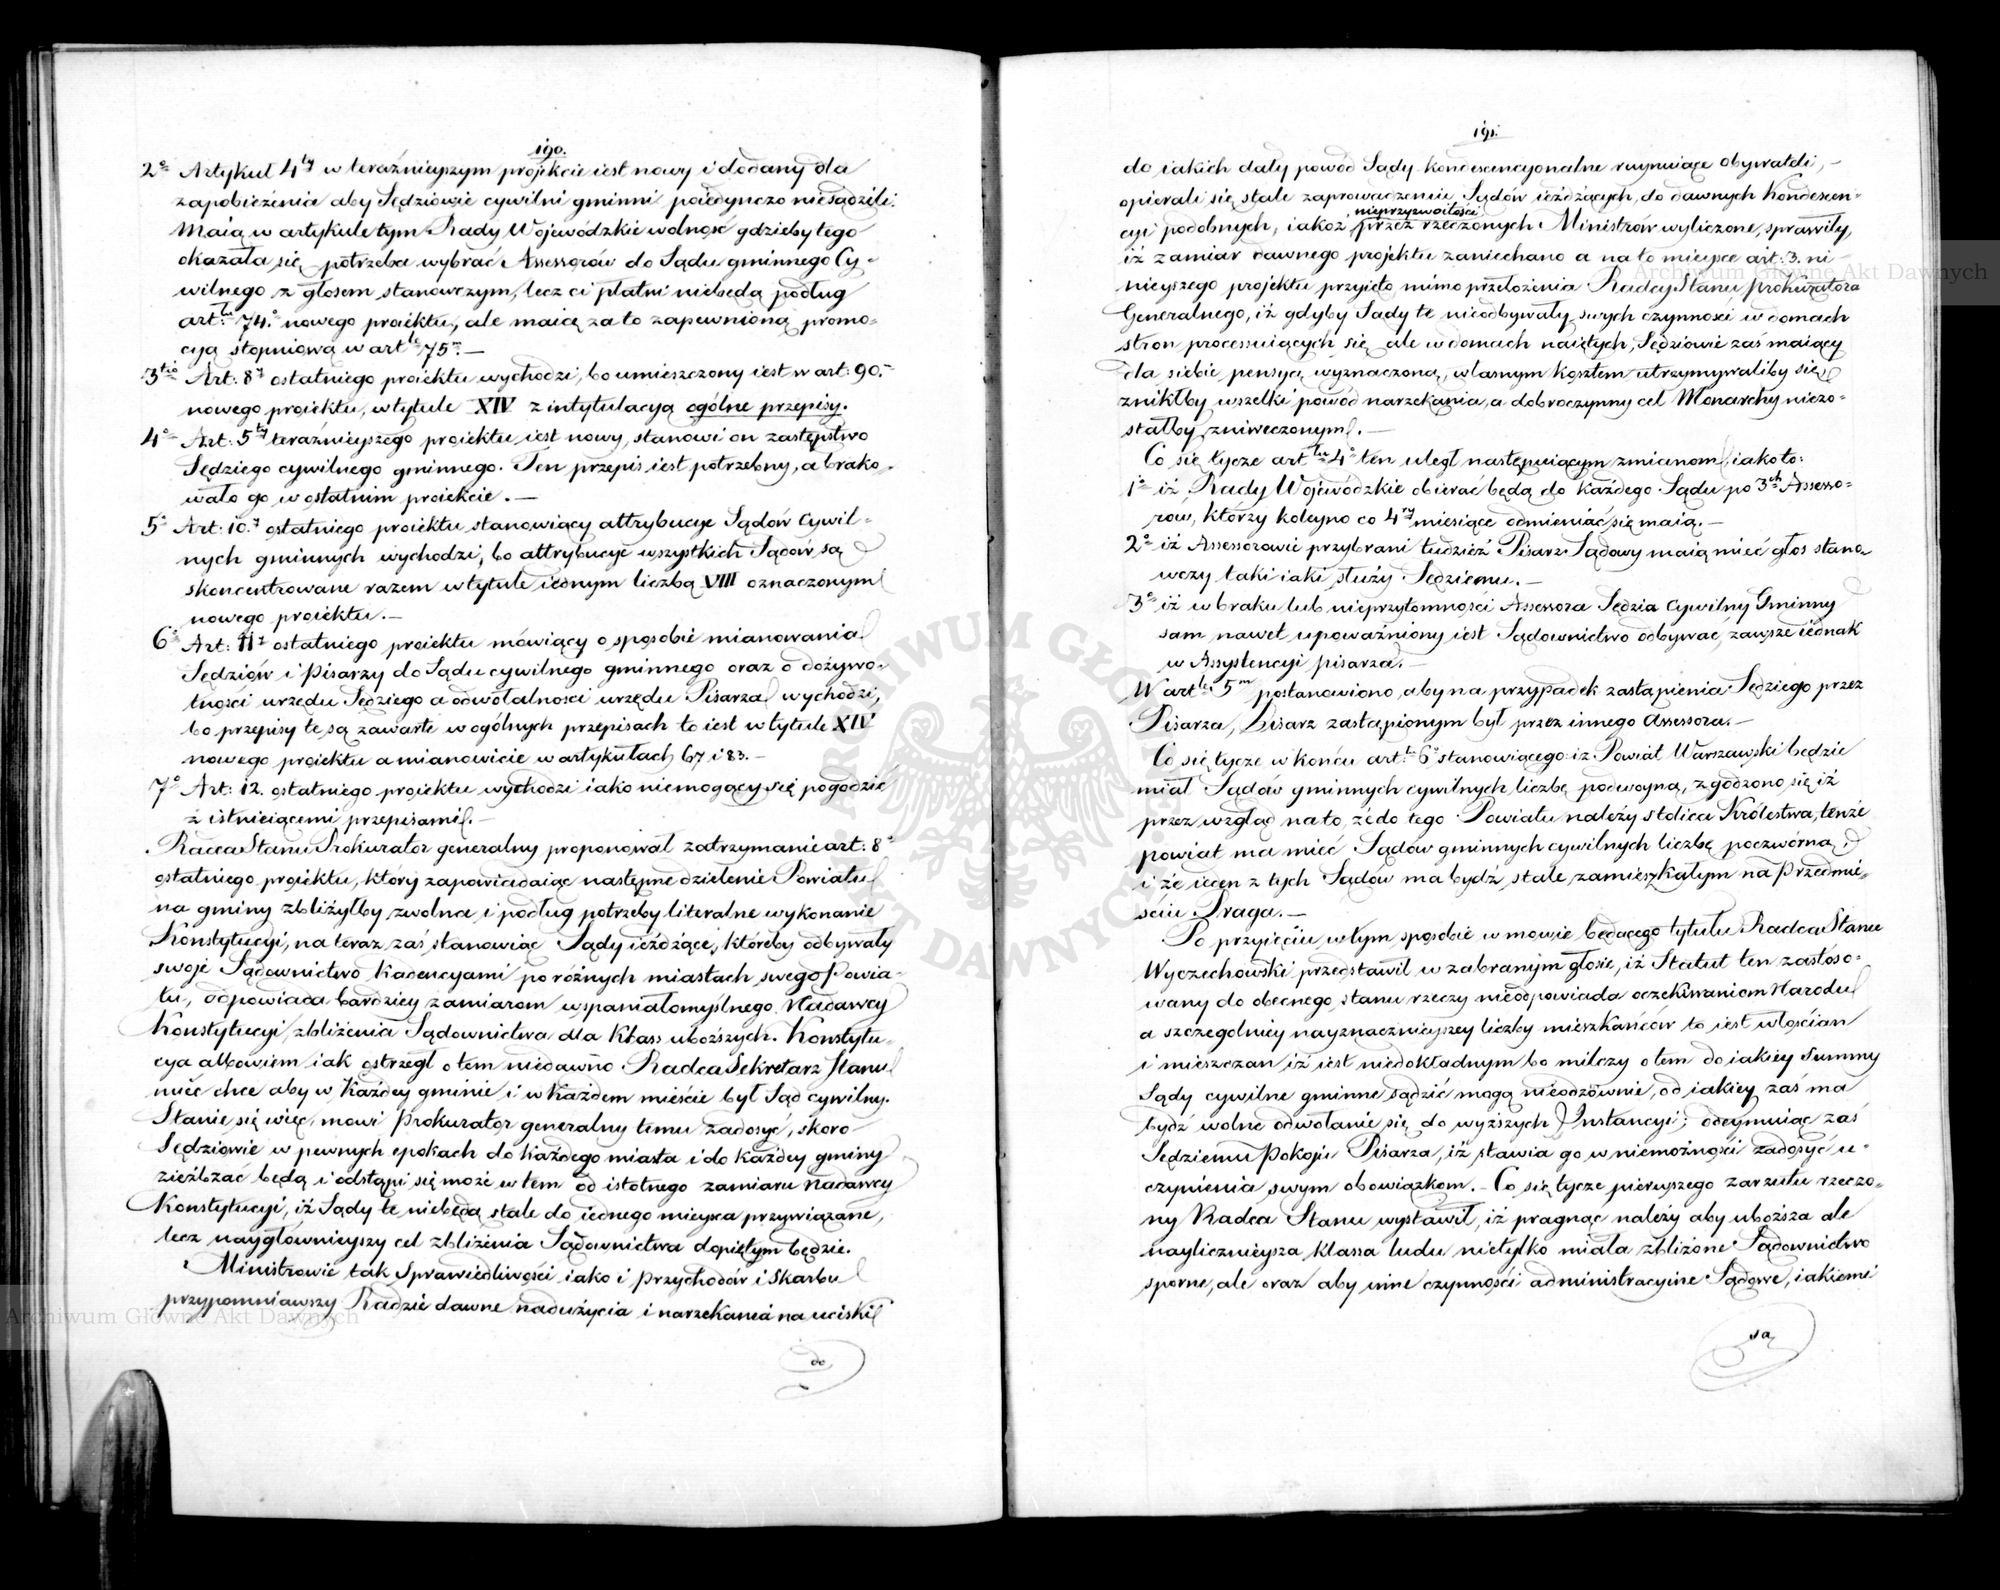 190.
2o Artykuł 4ty w teraźnieyszym projekcie iest nowy i dodany dla
zapobieżenia aby Sędziowie cywilni gminni poiedynczo niesądzili.
Maią w artykule tym Rady Wojewódzkie wolność gdzieby tego
okazała się potrzeba wybrać Assessorów do Sądu gminnego Cy-
wilnego z głosem stanowczym, lecz ci płatni niebędą podług
art:lu 74.o nowego proiektu, ale maią za to zapewnioną promo-
cyą stopniową w artle 75m. —
3tio Art: 8y ostatniego proiektu wychodzi, bo umieszczony iest w art: 90.
nowego proiektu, w tytule XIV z intytulacyą ogólne przepisy.
4o Art: 5ty teraźnieyszego proiektu iest nowy, stanowi on zastępstwo
Sędziego cywilnego gminnego. Ten przepis iest potrzebny, a brako-
wało go w ostatnim proiekcie. —
5o Art: 10.y ostatniego proiektu stanowiący attrybucye Sądów Cywil-
nych gminnych wychodzi, bo attrybucye wszystkich Sądów są
skoncentrowane razem w tytule iednym liczbą VIII oznaczonym
nowego proiektu. —
6o Art: 11y ostatniego proiektu mówiący o sposobie mianowania
Sędziów i Pisarzy do Sądu cywilnego gminnego oraz o dożywo-
tności urzędu Sędziego a odwołalności urzędu Pisarza wychodzi,
bo przepisy te są zawarte w ogólnych przepisach to iest w tytule XIV
nowego proiektu a mianowicie w artykułach 67 i 83. —
7o Art: 12. ostatniego proiektu wychodzi iako niemogący się pogodzić
z istnieiącemi przepisami. —
Radca Stanu Prokurator generalny proponował zatrzymanie art: 8o
ostatniego proiektu, który zapowiadaiąc następne dzielenie Powiatu
na gminy zbliżyłby zwolna i podług potrzeby literalne wykonanie
Konstytucyi, na teraz zaś stanowiąc Sądy ieżdżące, któreby odbywały
swoje Sądownictwo kadencyami po różnych miastach swego Powia-
tu, odpowiada bardziey zamiarom wspaniałomyślnego Nadawcy
Konstytucyi, zbliżenia Sądownictwa dla klass uboższych. Konstytu-
cya albowiem iak ostrzegł o tem niedawno Radca Sekretarz Stanu
mieć chce aby w każdey gminie i w każdem mieście był Sąd cywilny.
Stanie się więc, mówi Prokurator generalny temu zadosyć, skoro
Sędziowie w pewnych epokach do każdego miasta i do każdey gminy
zieżdżać będą i odstąpi się może w tem od istotnego zamiaru Nadawcy
Konstytucyi, iż Sądy te niebędą stale do iednego mieysca przywiązane,
lecz naygłównieyszy cel zbliżenia Sądownictwa dopiętym będzie.
Ministrowie tak Sprawiedliwości iako i Przychodów i Skarbu
przypomniawszy Radzie dawne nadużycia i narzekania na uciski
do
191.
do iakich dały powód Sądy kondescencyonalne ruynuiące obywateli, —
opierali się stale zaprowadzeniu Sądów ieżdżących, do dawnych Kondescen-
nieprzyzwoitości
cyi podobnych, iakoż przez rzeczonych Ministrów wyliczone, sprawiły,
iż zamiar dawnego projektu zaniechano a na to mieysce art: 3. ni-
nieyszego projektu przyięto mimo przełożenia Radcy Stanu Prokuratora
Generalnego, iż gdyby Sądy te nieodbywały swych czynności w domach
stron processuiących się ale w domach naiętych, Sędziowie zaś maiący
dla siebie pensyą wyznaczoną, własnym kosztem utrzymywaliby się
znikłby wszelki powód narzekania, a dobroczynny cel Monarchy niezo-
stałby zniweczonym. —
Co się tycze artłu 4o ten uległ następuiącym zmianom, iako to:
1o iż Rady Wojewódzkie obierać będą do każdego Sądu po 3ch Assesso-
row, którzy koleyno co 4ry miesiące odmieniać się maią. —
2o iż Assessorowie przybrani tudzież Pisarz Sądowy maią mieć głos stano-
wczy taki iaki służy Sędziemu. —
3o iż w braku lub nieprzytomności Assessora Sędzia Cywilny Gminny
sam nawet upoważniony iest Sądownictwo odbywać, zawsze iednak
w Assystencyi pisarza. —
W artle 5m postanowiono, aby na przypadek zastąpienia Sędziego przez
Pisarza, Pisarz zastąpionym był przez innego Assessora. —
Co się tycze w końcu art:łu 6o stanowiącego iż Powiat Warszawski będzie
miał Sądów gminnych cywilnych liczbę podwoyną, zgodzono się iż
przez wzgląd na to, że do tego Powiatu należy stolica Królestwa, tenże
powiat ma mieć Sądów gminnych cywilnych liczbę poczwórną
i że ieden z tych Sądów ma bydź stale zamieszkałym na Przedmie-
ściu Praga. —
Po przyięciu w tym sposobie w mowie będącego tytułu Radca Stanu
Wyczechowski przedstawił w zabranym głosie, iż Statut ten zastoso-
wany do obecnego stanu rzeczy nieodpowiada oczekiwaniom Narodu
a szczególniey nayznacznieyszey liczby mieszkańców to iest włościan
i mieszczan iż iest niedokładnym bo milczy o tem do iakiey Summy
Sądy cywilne gminne sądzić mogą nieodzównie, od iakiey zaś ma
bydź wolne odwołanie się do wyższych Instancyi; odeymuiąc zaś
Sędziemu Pokoju Pisarza, iż stawia go w niemożności zadosyć u-
czynienia swym obowiązkom. — Co się tycze pierwszego zarzutu rzeczo-
ny Radca Stanu wystawił, iż pragnąć należy aby uboższa ale
naylicznieysza klassa ludu nietylko miała zbliżone Sądownictwo
sporne, ale oraz aby inne czynności administracyine Sądowe, iakiemi
są
ARCHIWUM GŁÓWNE AKT DAWNYCH
Archiwum Główne Akt Dawnych
Archiwum Główne Akt Dawnych